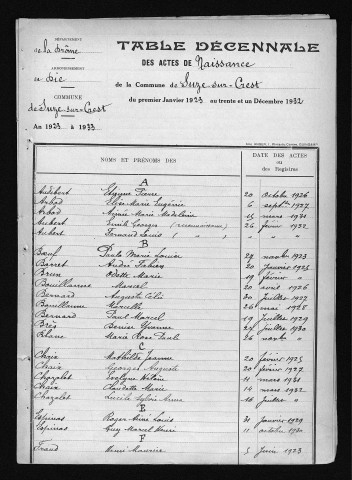 DÉPARTEMENT
de la Drôme
ARRONDISSEMENT
de Die
COMMUNE
de Suze-sur-Crest
An 1923 à 1933
TABLE DÉCENNALE
DES ACTES DE Naissance
de la Commune de Suze-sur-Crest
du premier Janvier 1923 au trente et un Décembre 1932
NOMS ET PRÉNOMS DES
DATE DES ACTES
ou
des Registres
A
Audibert Pierre 20 Octobre 1926
Arbod Marie Eugénie 6 sept 1927
Arbod Marie Madeleine 15 mars 1931
Achert Georges 26 février 1932
Achert Fernand Louis
B
Bœuf Paule Marie Louise 29 novbre 1923
Barret André 20 Janvier 1925
Brun Odette Marie février
Bouillanne Marcel 20 avril 1926
Bernard Auguste 20 Juillet 1927
Bouillanne Marcelle 26 mai 1928
Bernard Paul Marcel 19 Juillet 1929
Brès Denise Yvonne Juillet 1930
Blanc Marie Rose Paule novbre
C
Chaix Mathilde Jeanne 20 février 1925
Chaix Georges Auguste 20 février 1927
Chazalet Evelyne 11 mars 1931
Chaix Claudette Marie 14 mars 1932
Chazalet Lucile Sylvie 16 Juillet
E
Espinas Roger Aimé Louis 31 Janvier 1929
Espinas Guy Marcel Henri 11 octobre 1930
F
Fraud Henri Maurice 5 Juin 1923